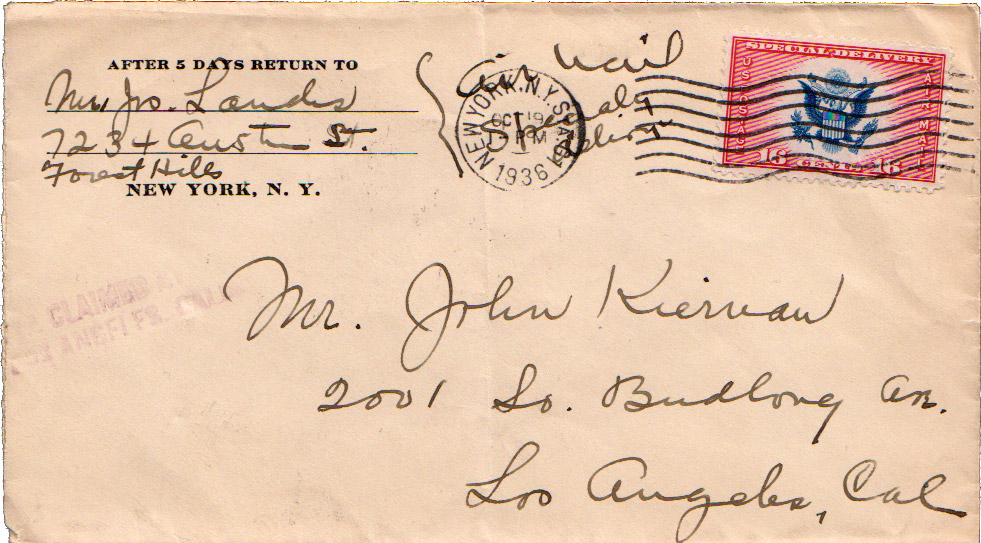 AFTER 5 DAYS RETURN TO
Mrs. Jos. Landis
7234 Austin St.
Forest Hills
NEW YORK, N. Y.
Air Mail
Special
Delivery
NEW YORK, N.Y.
OCT 19
PM
1936
SPECIAL DELIVERY
U.S. POSTAGE
AIR MAIL
16 CENTS 16
CLAIMED
LOS ANGELES, CALIF.
Mr. John Kiernan
2001 So. Budlong Av.
Los Angeles, Cal